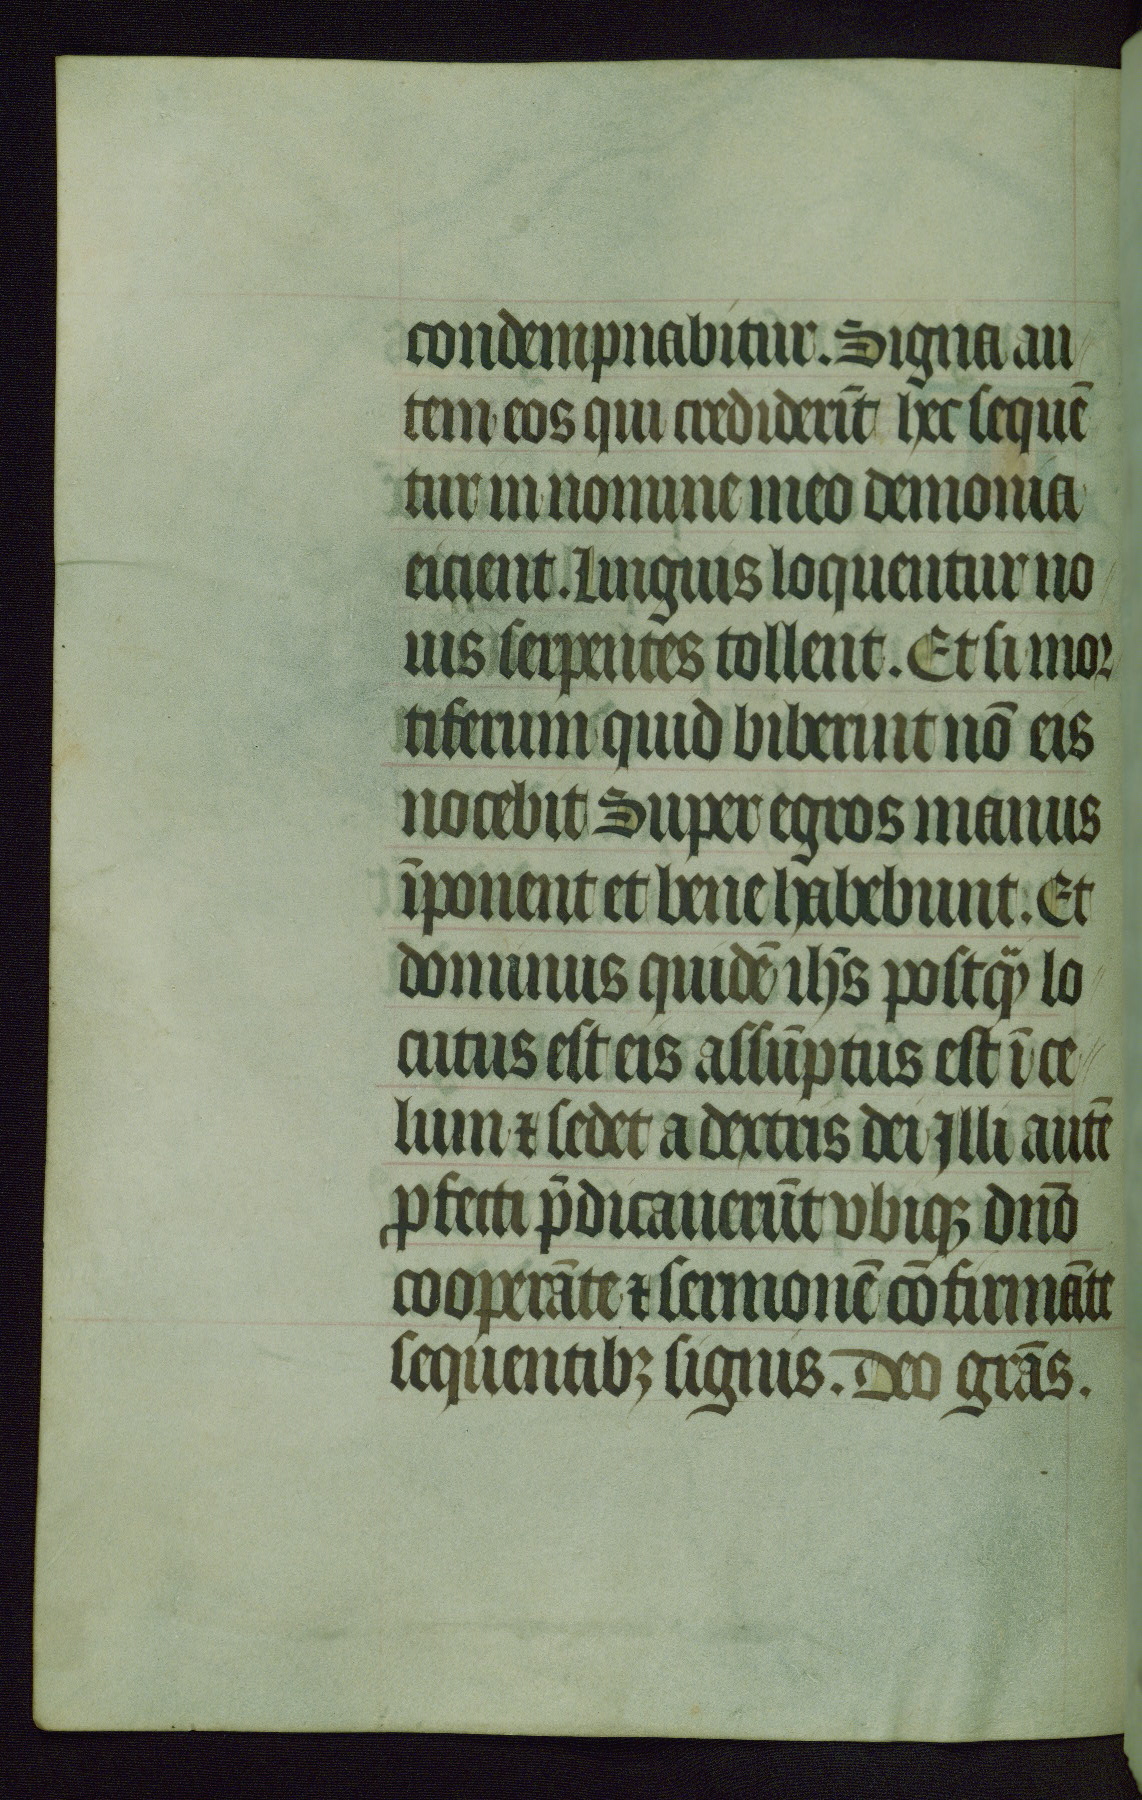 condempnabitur. Signa au
tem eos qui crediderūt hec sequē
tur in nomine meo demonia
eicient. Linguis loquentur no
uis serpentes tollent. Et si mor
tiferum quid biberint nō eis
nocebit Super egros manus
īponent et bene habebunt. Et
dominus quidē ihs̄ postq̃ lo
cutus est eis assūptus est ī ce
lum ⁊ sedet a dextris dei Illi autē
ꝓfecti p̄dicauerūt vbiqꝫ dn̄o
cooperāte ⁊ sermonē cōfirmāte
sequentibꝫ signis. Deo grās.